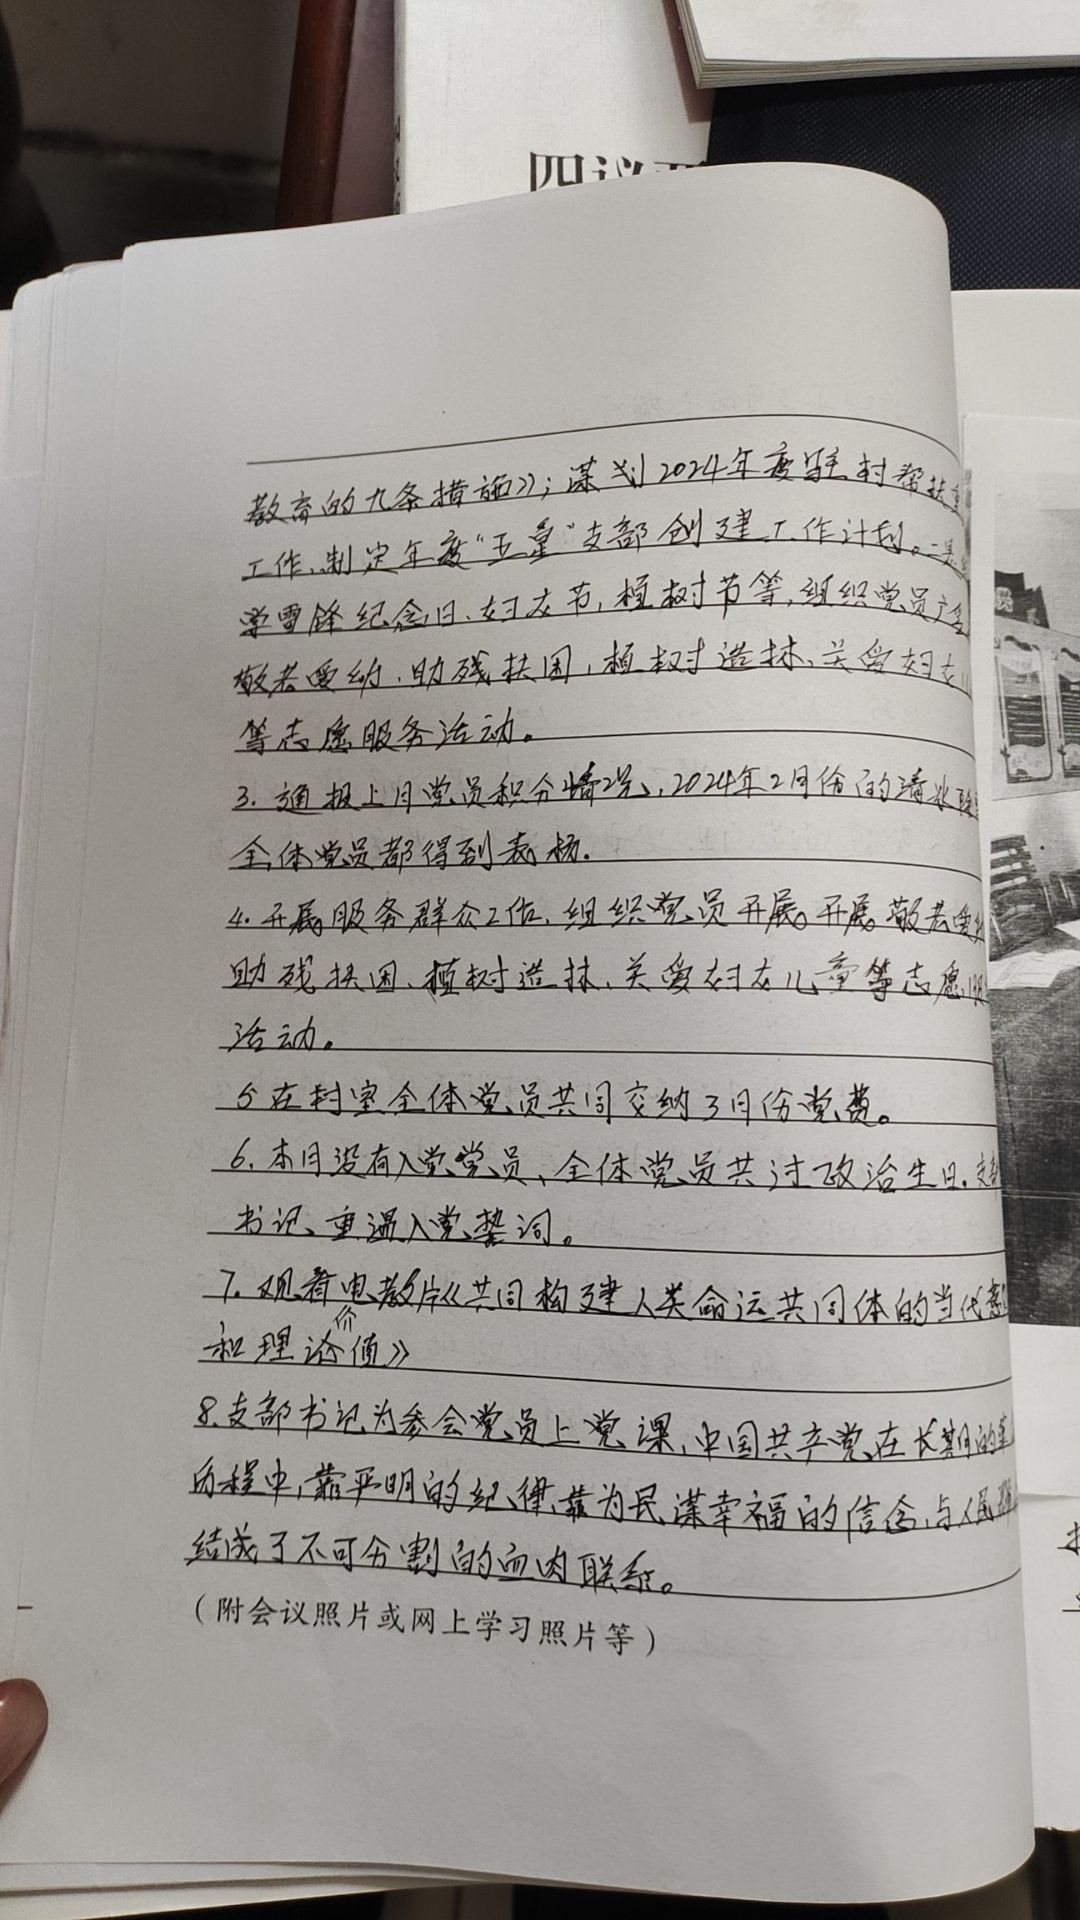 四议两
教育的九条措施》；谋划2024年度驻村帮扶
工作、制定年度“五星”支部创建工作计划。二是
学雷锋纪念日、妇女节，植树节等，组织党员
敬老爱幼、助残扶困，植树造林、关爱妇女
等志愿服务活动。
3. 通报上月党员积分情况、2024年2月份的清
全体党员都得到表杨.
4. 开展服务群众工作、组织党员开展开展敬老爱
助残扶困、植树造林、关爱妇女儿童等志愿服
活动。
5 在村室全体党员共同交纳3月份党费。
6. 本月没有入党党员、全体党员共过政治生日。支
书记、重温入党誓词。
7. 观看电教片《共同构建人类命运共同体的当代意
和理论价值》
8. 支部书记为参会党员上党课，中国共产党在长期的革
历程中，靠严明的纪律，靠为民谋幸福的信念，与人民群
结成了不可分割的血肉联系。
（附会议照片或网上学习照片等）